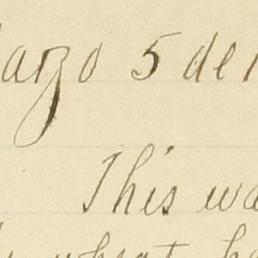 arzo 5 de 1
This wa
wheat ha